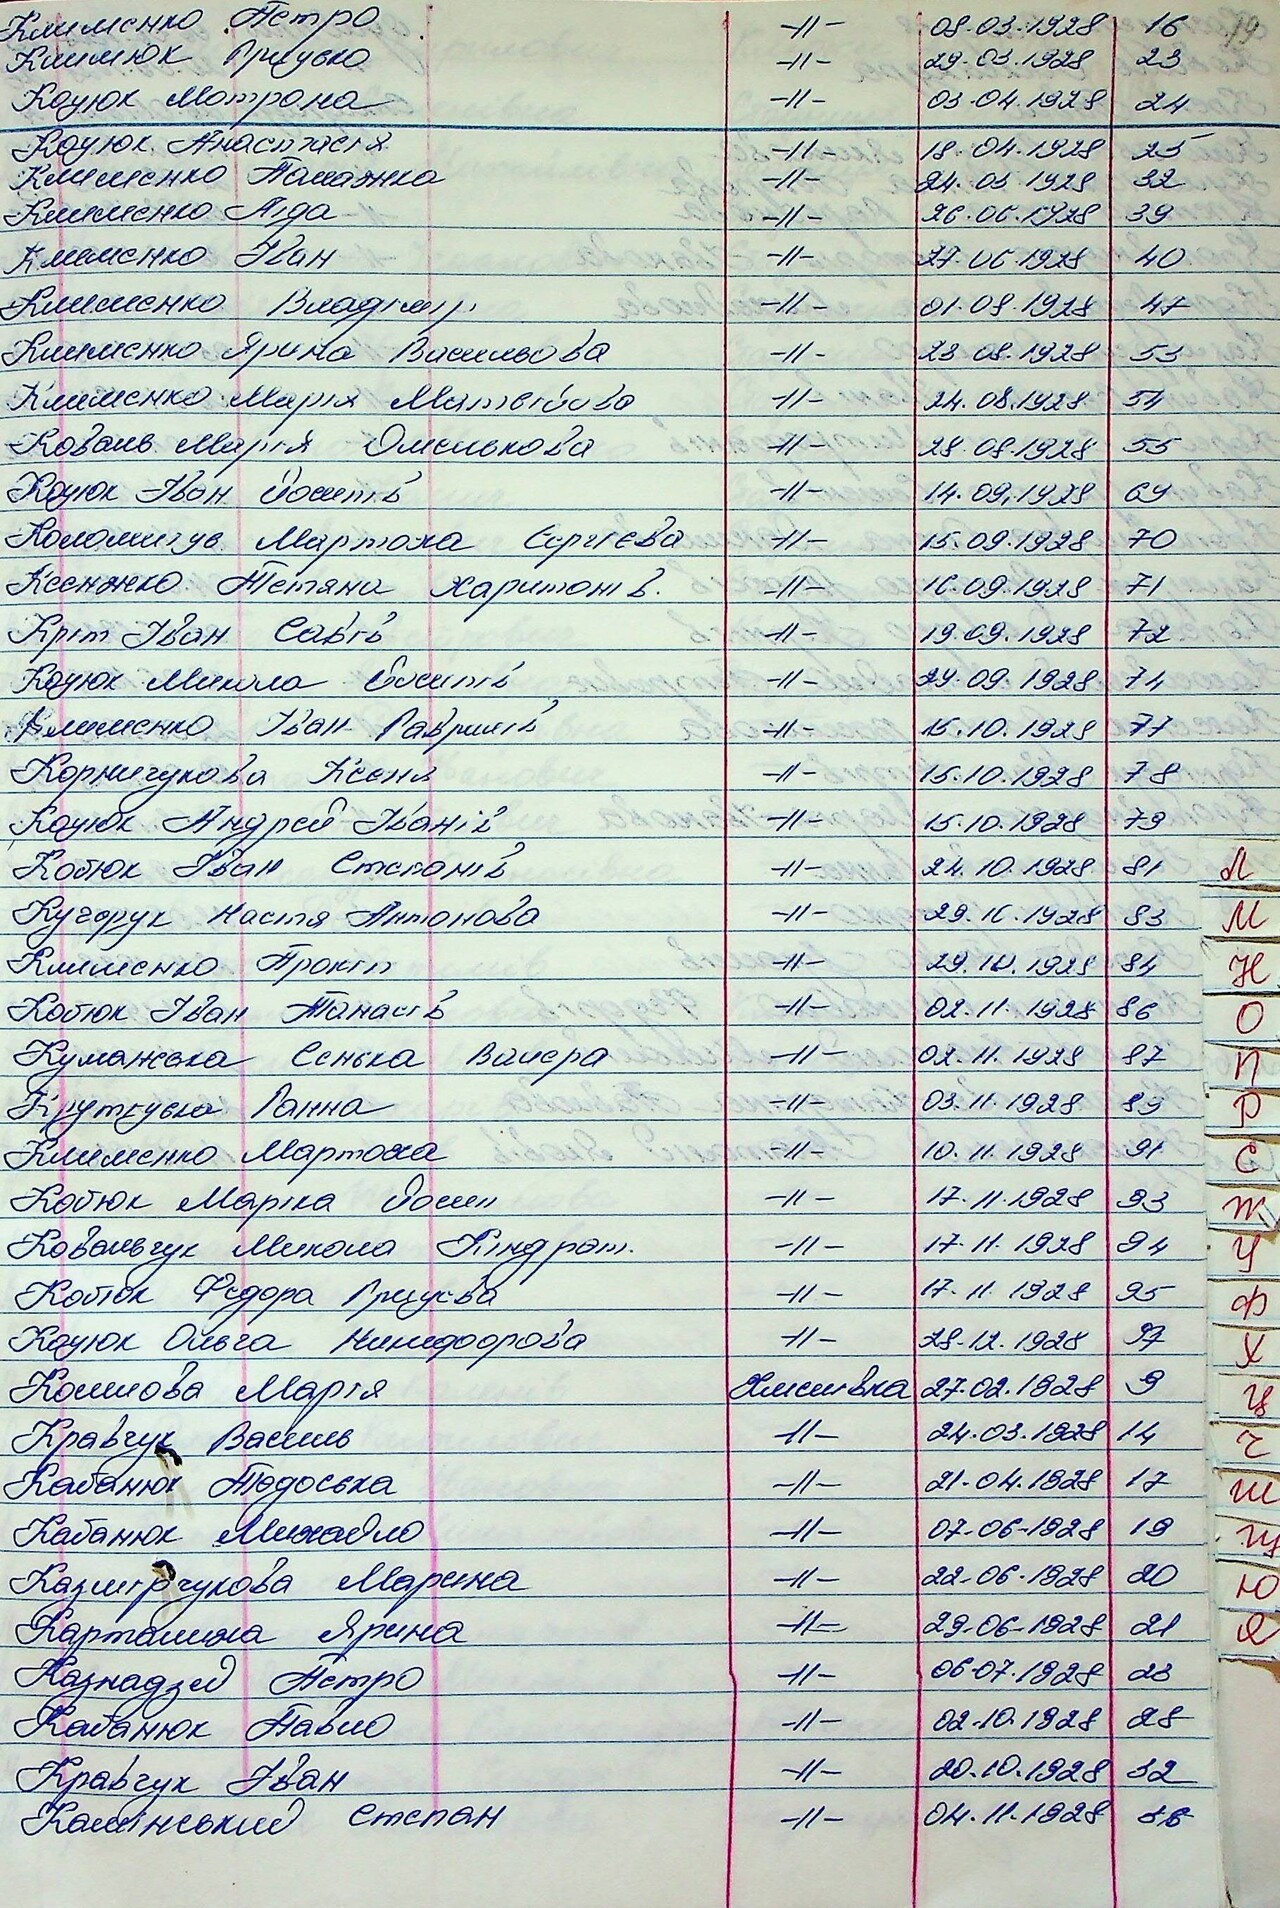 Клименко Петро -//- 08.03.1928 16 19
Климюк Грицько -//- 29.03.1928 23
Коцюк Мотрона -//- 03.04.1928 24
Коцюк Анастасія -//- 18.04.1928 25
Клименко Палажка -//- 24.05 1928 32
Клименко Ліда -//- 26.06.1928 39
Клименко Іван -//- 27.06 1928 40
Клименко Владімір. -//- 01.08.1928 47
Клименко Ярина Васильова -//- 23 08.1928 53
Клименко Марія Матвійова -//- 24.08.1928 54
Коваль Марія Омелькова -//- 28.08.1928 55
Коцюк Іван Йосипів -//- 14.09.1928 69
Коломицус Мартоха Сергієва -//- 15.09.1928 70
Ксенжко Тетяна Харитонів. -//- 16.09.1928 71
Кріт Іван Савів -//- 19.09.1928 72
Коцюк Микола Йосипів -//- 29.09 1928 74
Клименко Іван Гаврилів -//- 15.10.1928 77
Корничукова Ксеня -//- 15.10.1928 78
Коцюк Андрей Іванів -//- 15.10.1928 79
Кобюк Іван Степанів -//- 24.10.1928 81
Кучерук Настя Антонова -//- 29.10.1928 83
Клименко Прокіп -//- 29.10.1928 84
Кобюк Іван Панасів -//- 02.11.1928 86
Куманська Сенька Валера -//- 02.11.1928 87
Ганна -//- 03.11.1928 89
Клименко Мартоха -//- 10.11.1928 91
Кобюк Маріка Йосип -//- 17.11.1928 93
Ковальчук Микола Кіндрат. -//- 17.11.1928 94
Кобюк Федора Грицьева -//- 17.11.1928 95
Коцюк Ольга Никифорова -//- 28.12.1928 97
Комкова Марія Хмелівка 27.02.1928 9
Кравчук Василь -//- 24.03.1928 14
Кабанюк Тодоська -//- 21.04.1928 17
Кабанюк Михайло -//- 07.06.1928 19
Казмірчукова Марина -//- 22.06.1928 20
Карташина Ярина -//- 29.06.1928 21
Казнадзей Петро -//- 06.07.1928 23
Кабанюк Павло -//- 02.10.1928 28
Кравчук Іван -//- 20.10.1928 32
Камінський Степан -//- 04.11.1928 36
Л
М
Н
О
П
Р
С
Т
У
Ф
Х
Ц
Ч
Ш
Щ
Ю
Я